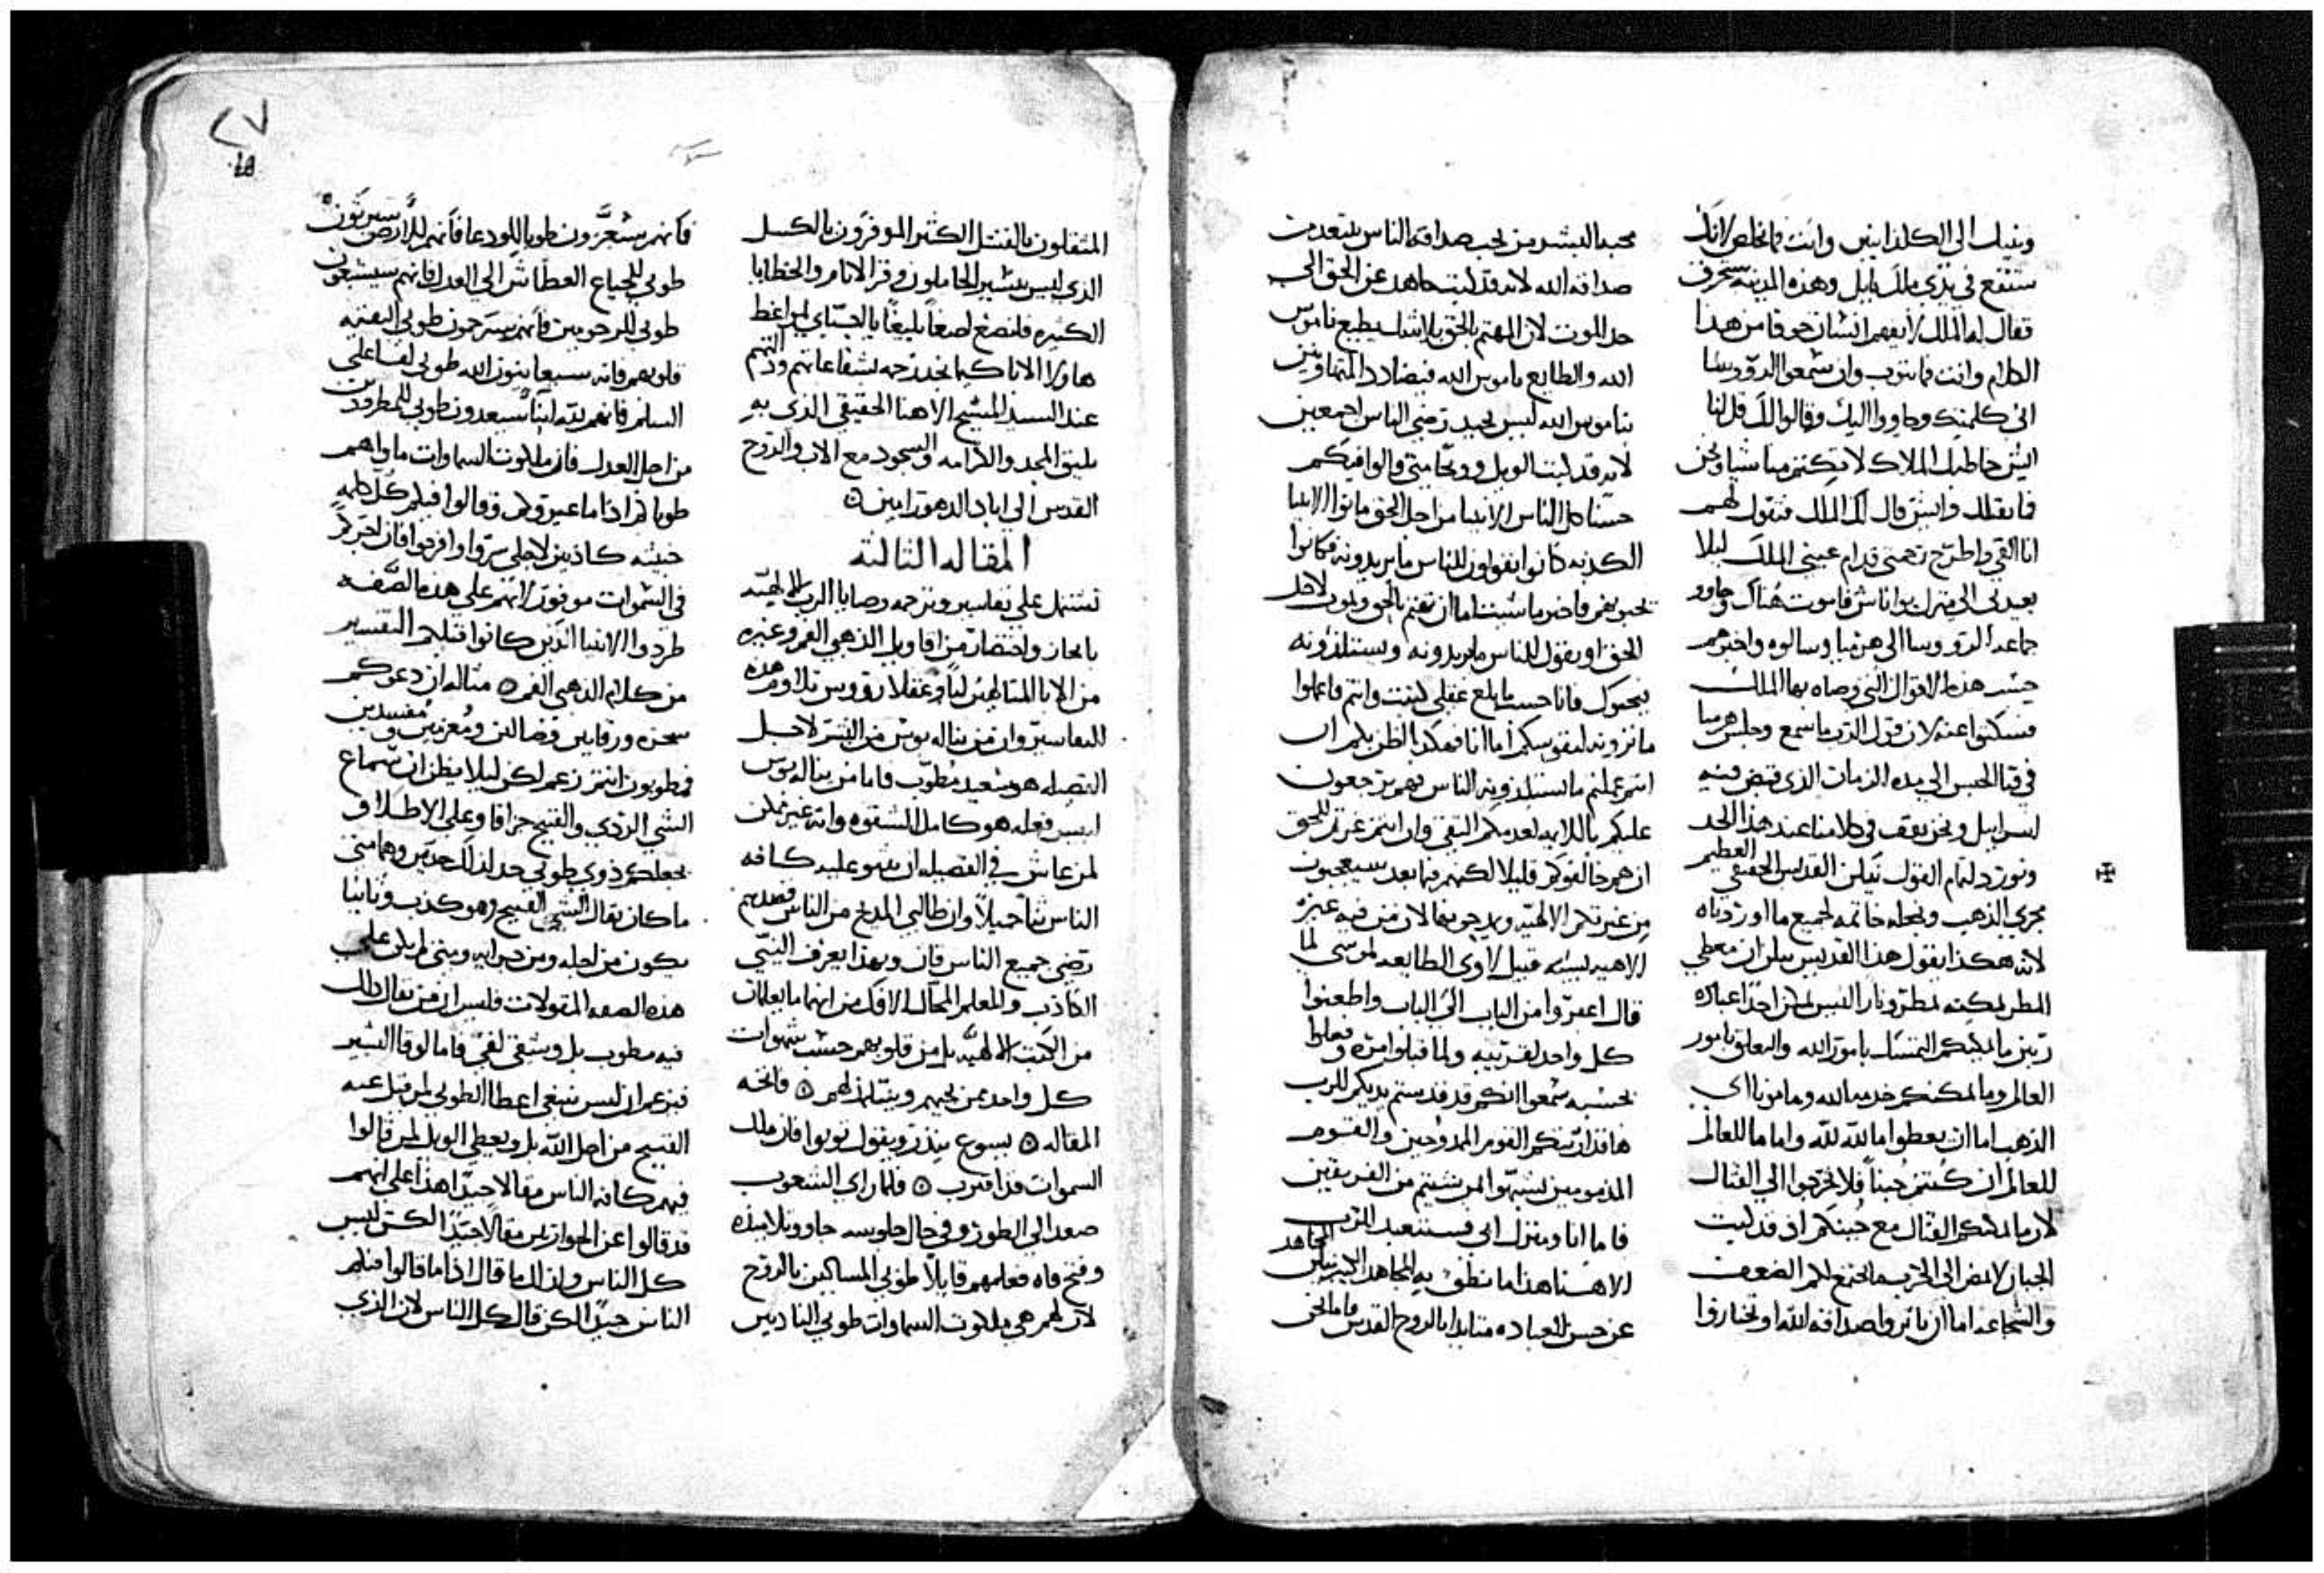 وبنيك الى الكلدانيين وانت فما تخلص لانك
ستقع في يدي ملك بابل وهذه المدينه ستحرق
فقال له الملك لا يفهم انسان حرفا من هذا
الكلام وانت فما تموت وان سمعوا الروسا
اني كلمتك وجاووا اليك وقالوا لك قل لنا
ايش خاطبك الملك لا تكتم منا شيا ونحن
فما نقتلك وايش قال لك الملك فتقول لهم
انا القي واطرح رحمتي قدام عيني الملك ليلا
يعيدني الى منزل يوناثان فاموت هناك وجاوو
جماعه الروسا الى هرميا وسالوه واخبرهم
حسب هذه الاقوال التي وصاه بها الملك
فسكتوا عنه لان قول الرب ما سمع وجلس هرميا
في قبا الحبس الى مده الزمان الذي قبض فيه
اسراييل ونحن نقف في كلامنا عند هذا الحد
ونورد لتمام القول نيلن القديس الحقيقي العظيم
مجرى الذهب ونجعله خاتمه لجميع ما اوردناه
لانه هكذا يقول هذا القديس نيلن ان معطي
المطر
العالم وما يمكنكم خدمه الله ومامونا اي
الذهب اما ان يعطوا ما لله لله واما ما للعالم
للعالم ان كنتم جبنا فلا تخرجوا الى القتال
لان ما يمكنكم القتال مع جبنكم اذ قد كتبت
الجبان لا يمض الى الحرب ما يجتمع لكم الضعف
والشجاعه اما ان تاتروا صداقه الله او تختاروا
محبه البشر من يحب صداقه الناس يبتعد من
صداقه الله لانه قد كتبت جاهد عن الحق الى
حد الموت لان المهتم بالحق بلا شك يطيع ناموس
الله والطايع ناموس الله فيضادد المتهاونين
بناموس الله ليس يجيد ترضي الناس اجمعين
لانه قد كتبت الويل ووكا متى قالوا فيكم
حسنا كل الناس الانبيا من اجل الحق ماتوا الانبيا
الكذبه كانوا يقولون للناس ما يريدونه فكانوا
يحبونهم فاختر ما شيت اما ان تهتم بالحق وتموت لاجل
الحق او يقول للناس ما يريدونه ويستلذونه
فيحبوك فانا حسب ما بلغ عقلي كتبت وانتم فاعملوا
ما ترونه لنفوسكم اما انا فهكذا الظن بكم ان
انتم عملتم ما تستلذونه الناس فهم يرجعون
عليكم باللايمه لعدمكم التقى وان انتم عرتم للحق
ان هم خالفوكم قليلا لكنهم فيما بعد سيعجبون
من غيرتكم الالهيه ويرجونها لان من فيه غيره
الاهيه يشبه قبيل لاوي الطايعه لموسى لما
قال اعبروا من الباب الى الباب واطعنوا
كل واحد لقريبه ولما قبلوا امره وفعلوا
بحسبه سمعوا انكم قد قدستم يديكم للرب
هاقد اريتكم القوم الممدوحين والقوم
المذمومين تشبهوا بمن شيتم من الفريقين
فاما انا ومنزل ابي فسنعبد الرب
الاهنا هذا ما نطق به المجاهد الكبير نيلن المجاهد
عن حسن العباده متايدا بالروح القدس فاما نحن
المثقلون بالفشل الكثير الموقرون بالكسل
الذي ليس بيسير الحاملون وقر الاثام والخطايا
الكثيره فلنصغ لصغا بليغا يا احباي لمواعظ
هاولا الابا كيما نجد رحمه بشفاعاتهم ودالتهم
عند السيد المسيح الاهنا الحقيقي الذي به
يليق المجد والكرامه والسجود مع الاب والروح
القدس الى اباد الدهور امين ۞
المقاله الثالثه
تشتمل على تفاسير وترجمه وصايا الرب الالهيه
بايجاز واختصار من اقاويل الذهبي الفم وغيره
من الابا المتالهين لبا وعقلا رووس تلاوه هذه
التفاسير وان من يناله بوس من البشر لاجل
الفضيله هو سعيد مطوب فاما من يناله بوس
لبيس فعله هو كامل الشقوه وانه غير ممكن
لمن عاش في الفضيله ان يثنوا عليه كافه
الناس ثنا جميلا وان طالبي المديح من الناس قصدهم
ترضي جميع الناس فان وبهذا يعرف النبي
الكاذب والمعلم المحال الافك من انهما ما يعلمان
من الكتب الالهيه بل من قلوبهم حسب شهوات
كل واحد ممن يحبهم ويستلذ لهم ۞ فاتحه
المقاله ۞ يسوع ينذر ويقول توبوا فان ملك
السموات قد اقترب ۞ فلما راي الشعوب
صعد الى الطور وفي حال جلوسه جاوو تلاميذه
وفتح فاه فعلمهم قايلا طوبى المساكين بالروح
لان لهم هي ملكوت السماوات طوبى النادبين
فانهم سيتعزون طوبا للودعا فانهم للارض سيرثون
طوبى للجياع العطاش الى العدل فانهم سيشبعون
طوبى للرحومين فانهم سيرحمون طوبى النقيه
قلوبهم فانهم سيعاينون الله طوبى لفاعلي
السلم فانهم لله ابنا سيعدون طوبى للمطرودين
من اجل العدل فان ملكوت السماوات ماواهم
طوباكم اذا ما عيروكم وقالوا فيكم كل كلمه
خبيثه كاذبين لاجلي سروا وافرحوا فان اجركم
في السموات موفور لانهم على هذه الصفه
طردوا الانبيا الذين كانوا قبلكم التفسير
من كلام الذهبي الفم ۞ مثاله ان دعوكم
سحره ورقايين وضالين ومغرمين ومفسدين
فمطوبون انتم زعم لكن ليلا يظن ان سماع
الشي الردي والقبيح جزافا وعلى الاطلاق
يجعلكم ذوي طوبى حد لذلك حدين وهما متى
ما كان يقال الشي القبيح وهو كذب وثانيا
يكون من اجله ومن جرايه ومتى لم يكن على
هذه الصفه المقولات فليس ان من يقال ذلك
فيه مطوب بل وشقي لقي فاما لوقا البشير
فيزعم ان ليس ينبغي اعطا الطوبى لمن قيل عنه
القبيح من اجل الله بل ويعطي الويل لمن قالوا
فيهم كافه الناس مقالا جيدا هذا على انهم
قد قالوا عن الحواريين مقالا جيدا لكن ليس
كل الناس ولذلك ما قال اذا ما قالوا فيكم
الناس جيدا لكن قال كل الناس لان الذي